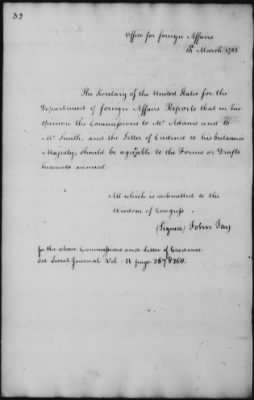 32
Office for foreign Affairs
March 1785
The Secretary of the United States for the
Department of foreign Affairs Reports that in his
opinion the Commissions to Mr Adams and to
Mr Smith, and the Letter of Credence to his britannic
Majesty, should be agreeable to the Forms or Drafts
hereunto annexed
All which is submitted to the
Wisdom of Congress
(Signed) John Jay
for the above Commissions and Letter of Credence
see Secret Journal Vol. II page 267 & 268.